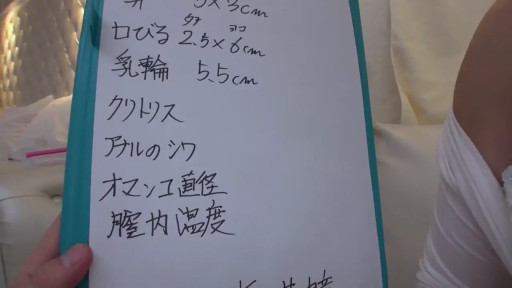 5×3cm
口びる タテ2.5×ヨコ6cm
乳輪 5.5cm
クリトリス
アナルのシワ
オマンコ直径
膣内温度